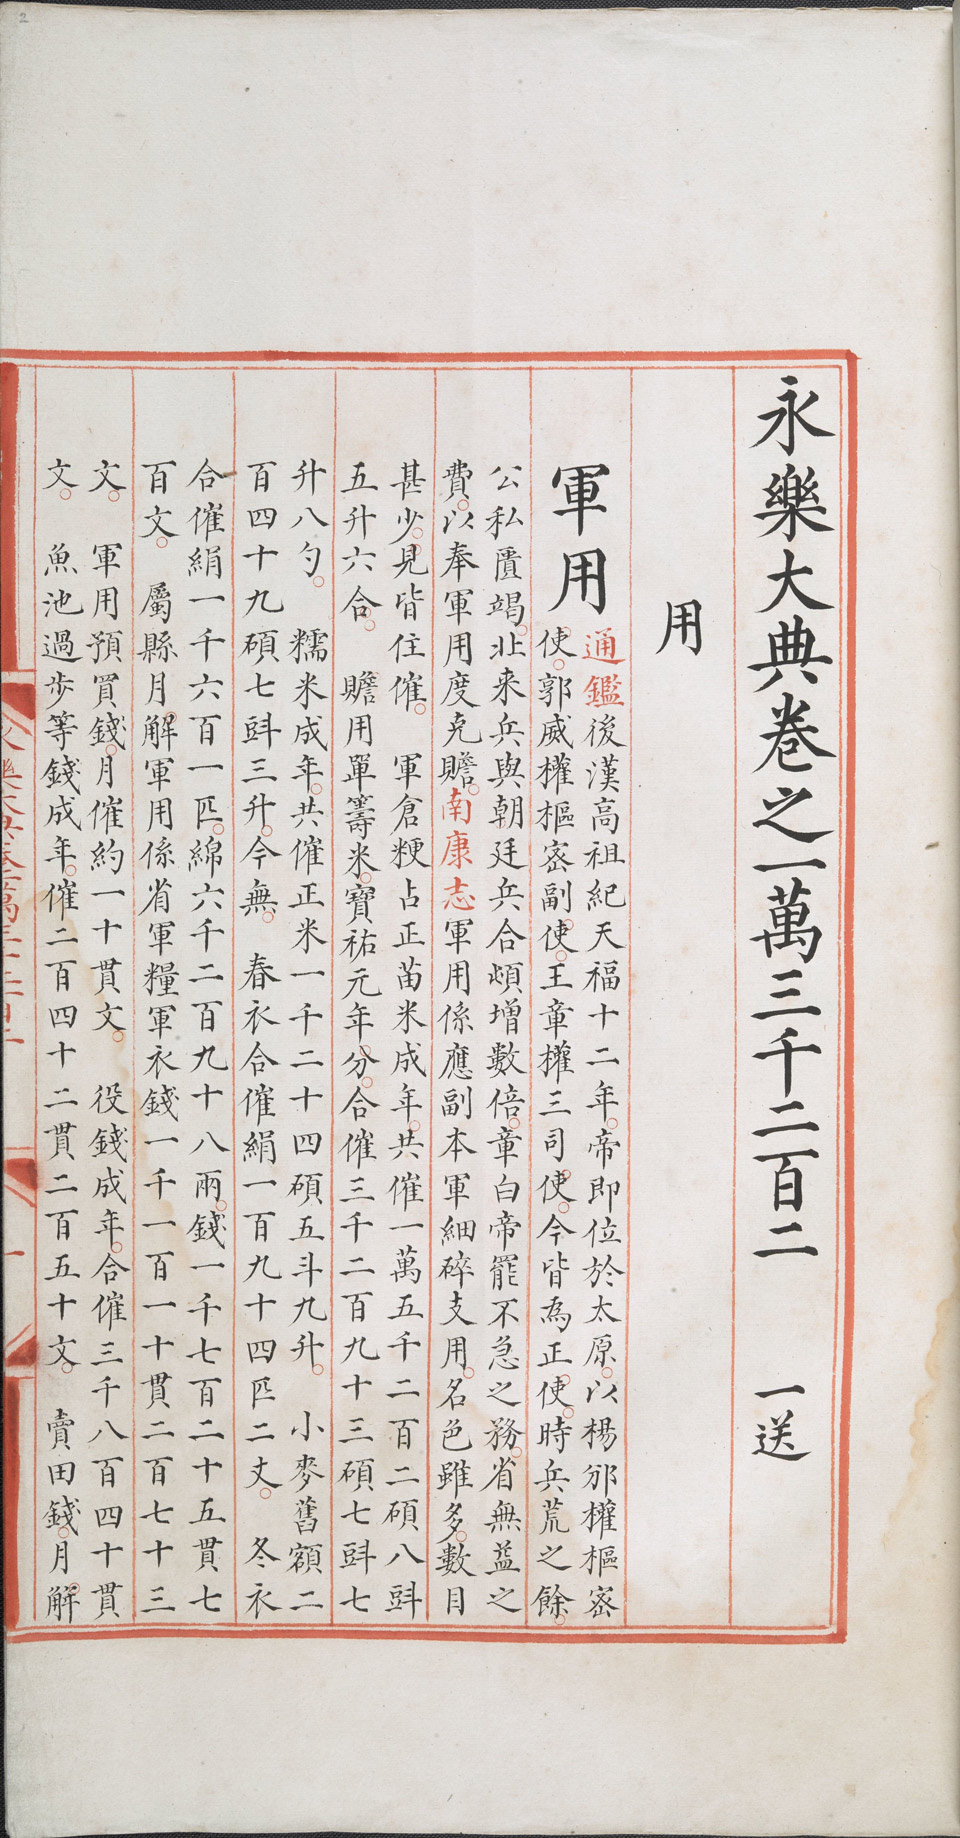 永樂大典卷之一萬三千二百二 一送
用
軍用
通鑑後漢高祖紀天福十二年帝即位於太原以楊邠權樞密
使郭威權樞密副使王章權三司使今皆為正使時兵荒之餘
公私匱竭北来兵與朝廷兵合頓增數倍章白帝罷不急之務省無益之
費以奉軍用度克贍南康志軍用係應副本軍細碎支用名色雖多數目
甚少見皆住催 軍倉粳占正苗米成年共催一萬五千二百二碩八㪷
五升六合 贍用單籌米寶祐元年分合催三千二百九十三碩七㪷七
升八勺 糯米成年共催正米一千二十四碩五斗九升 小麥舊額二
百四十九碩七㪷三升今無 春衣合催絹一百九十四匹二丈 冬衣
合催絹一千六百一匹綿六千二百九十八兩錢一千七百二十五貫七
百文 屬縣月解軍用係省軍糧軍衣錢一千一百一十貫二百七十三
文 軍用預買錢月催約一十貫文 役錢成年合催三千八百四十貫
文 魚池過步等錢成年催二百四十二貫二百五十文 賣田錢月解
2